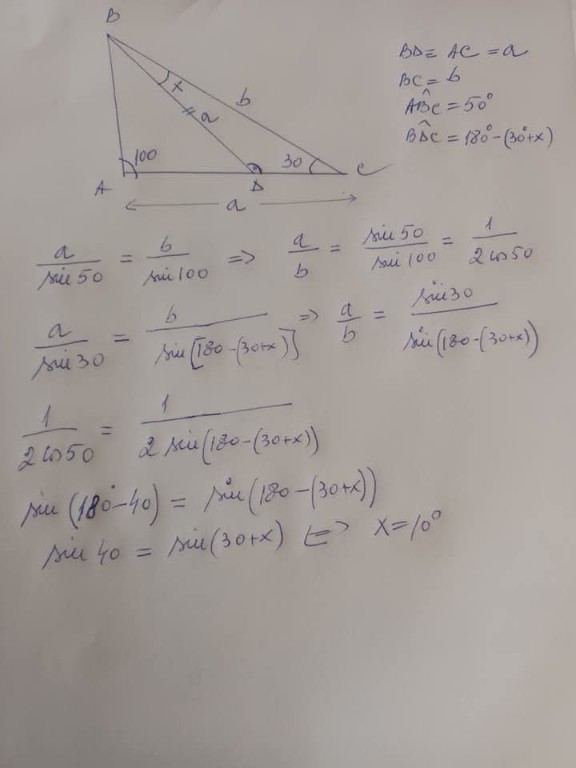 B
BD = AC = a
BC = b
AB̂C = 50°
BD̂C = 180° - (30° + x)
x
b
a
100
30
A
D
C
a
a/sin 50 = b/sin 100 => a/b = sin 50/sin 100 = 1/2 cos 50
a/sin 30 = b/sin[180 - (30+x)] => a/b = sin 30/sin(180 - (30+x))
1/2 cos 50 = 1/2 sin(180 - (30+x))
sin (180° - 40) = sin (180 - (30+x))
sin 40 = sin (30+x) <=> x = 10°